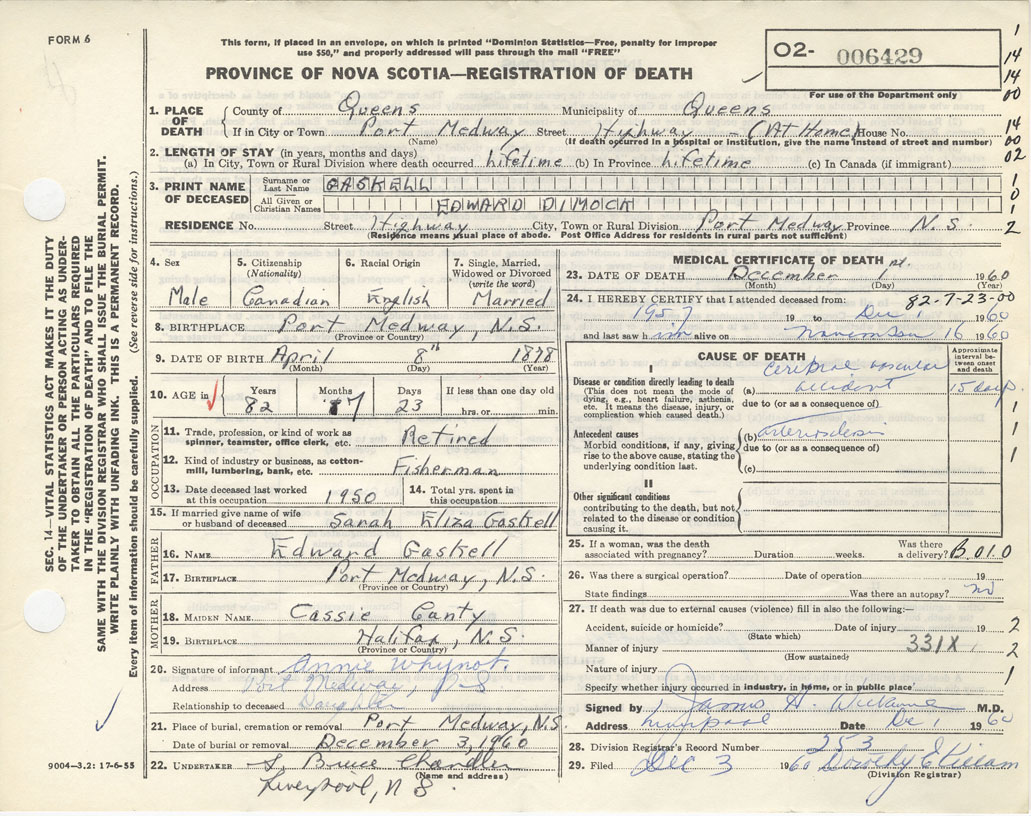 FORM 6
This form, if placed in an envelope, on which is printed "Dominion Statistics—Free, penalty for improper
use $50," and properly addressed will pass through the mail "FREE"
PROVINCE OF NOVA SCOTIA—REGISTRATION OF DEATH
O2- 006429
For use of the Department only
1
14
14
00
14
00
02
1
0
1
2
SEC. 14—VITAL STATISTICS ACT MAKES IT THE DUTY
OF THE UNDERTAKER OR PERSON ACTING AS UNDER-
TAKER TO OBTAIN ALL THE PARTICULARS REQUIRED
IN THE "REGISTRATION OF DEATH" AND TO FILE THE
SAME WITH THE DIVISION REGISTRAR WHO SHALL ISSUE THE BURIAL PERMIT.
WRITE PLAINLY WITH UNFADING INK. THIS IS A PERMANENT RECORD.
Every item of information should be carefully supplied. (See reverse side for instructions.)
1. PLACE OF DEATH County of Queens Municipality of Queens
If in City or Town Port Medway Street Highway - (At Home) House No.
(Name) (If death occurred in a hospital or institution, give the name instead of street and number)
2. LENGTH OF STAY (in years, months and days)
(a) In City, Town or Rural Division where death occurred lifetime (b) In Province lifetime (c) In Canada (if immigrant)
3. PRINT NAME OF DECEASED Surname or Last Name GASKELL
All Given or Christian Names EDWARD DIMOCK
RESIDENCE No. Street Highway City, Town or Rural Division Port Medway Province N.S.
(Residence means usual place of abode. Post Office Address for residents in rural parts not sufficient)
4. Sex 5. Citizenship (Nationality) 6. Racial Origin 7. Single, Married, Widowed or Divorced (write the word)
Male Canadian English Married
8. BIRTHPLACE Port Medway, N.S.
(Province or Country)
9. DATE OF BIRTH April 8th 1878
(Month) (Day) (Year)
10. AGE in Years Months Days If less than one day old
82 7 23 hrs. or min.
OCCUPATION
11. Trade, profession, or kind of work as spinner, teamster, office clerk, etc. Retired
12. Kind of industry or business, as cotton-mill, lumbering, bank, etc. Fisherman
13. Date deceased last worked at this occupation 1950 14. Total yrs. spent in this occupation
15. If married give name of wife or husband of deceased Sarah Eliza Gaskell
FATHER
16. NAME Edward Gaskell
17. BIRTHPLACE Port Medway, N.S.
(Province or Country)
MOTHER
18. MAIDEN NAME Cassie Canty
19. BIRTHPLACE Halifax, N.S.
(Province or Country)
20. Signature of informant Annie Whynot
Address Port Medway,
Relationship to deceased Daughter
21. Place of burial, cremation or removal Port Medway, N.S.
Date of burial or removal December 3, 1960
22. UNDERTAKER S. Bruce Chandler
(Name and address)
Liverpool, N S.
9004—3.2: 17-6-55
MEDICAL CERTIFICATE OF DEATH
23. DATE OF DEATH December 1 1960
(Month) (Day) (Year)
24. I HEREBY CERTIFY that I attended deceased from: 82-7-23-00
1957 19 to Dec 1 1960
and last saw him alive on November 16 1960
CAUSE OF DEATH Approximate interval between onset and death
I
Disease or condition directly leading to death
(This does not mean the mode of dying, e.g., heart failure, asthenia, etc. It means the disease, injury, or complication which caused death.)
(a) cerebral vascular accident 15 days
due to (or as a consequence of)
Antecedent causes
Morbid conditions, if any, giving rise to the above cause, stating the underlying condition last.
(b) arteriosclerosis
due to (or as a consequence of)
(c)
1
1
1
II
Other significant conditions contributing to the death, but not related to the disease or condition causing it.
25. If a woman, was the death associated with pregnancy? Duration weeks. Was there a delivery? B.010
26. Was there a surgical operation? Date of operation 19
State findings Was there an autopsy? no
27. If death was due to external causes (violence) fill in also the following:—
Accident, suicide or homicide? Date of injury 19 2
(State which)
Manner of injury 331X 2
(How sustained)
Nature of injury 1
Specify whether injury occurred in industry, in home, or in public place
Signed by James H. M.D.
Address Liverpool Date Dec 1 1960
28. Division Registrar's Record Number 253
29. Filed Dec 3 1960 Dorothy E Killam
(Division Registrar)